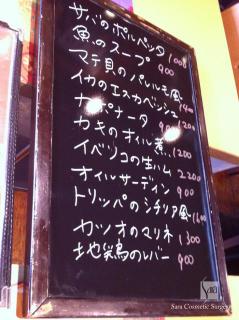 サバのポルペッタ 1000
魚のスープ 900
マテ貝のパレルモ風 1400
イカのエスカベッシュ 1200
カポナータ 900
カキのオイル煮 1200
イベリコの生ハム 2200
オイルサーディン 900
トリッパのシチリア風 1600
カツオのマリネ 1300
地鶏のレバー 900
Sara Cosmetic Surgery